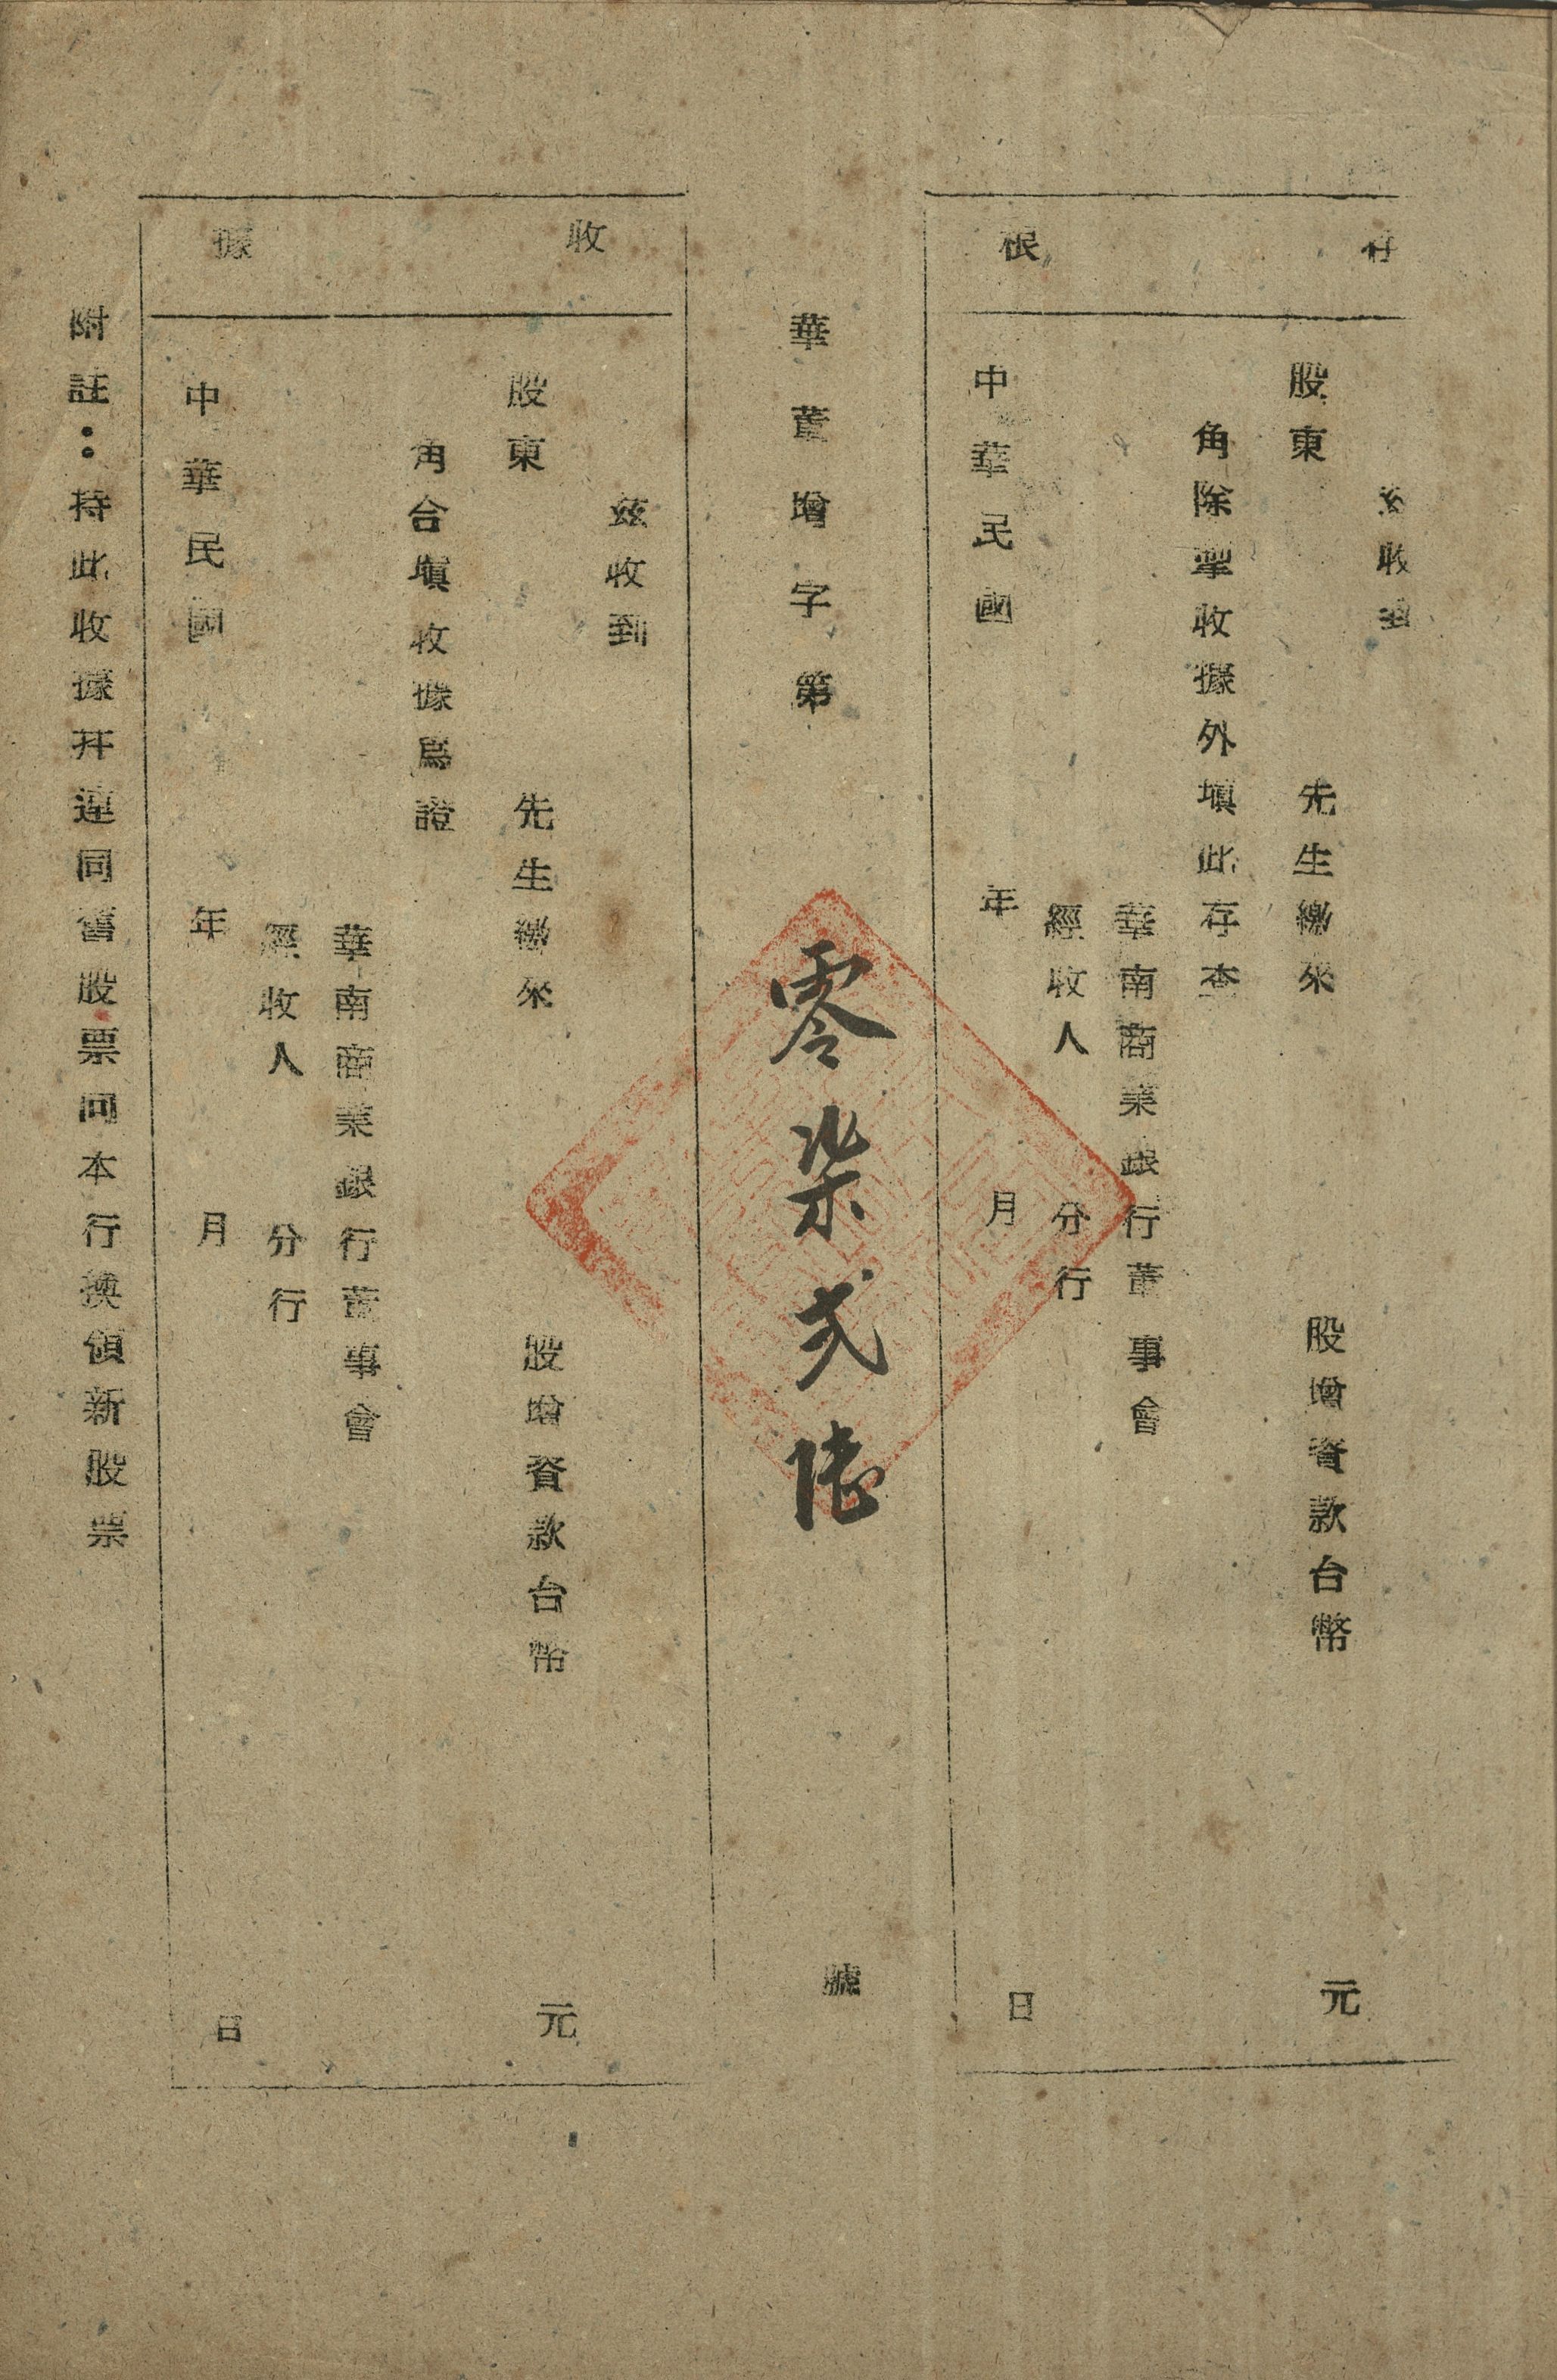 存根
茲收到
股東　先生繳來　股增資款台幣　元
角除掣收據外塡此存查
華南商業銀行董事會
經收人　分行
中華民國　年　月　日
華董增字第零柒弍陸號
收據
茲收到
股東　先生繳來　股增資款台幣　元
角合塡收據爲證
華南商業銀行董事會
經收人　分行
中華民國　年　月　日
附註：持此收據幷連同舊股票向本行換領新股票